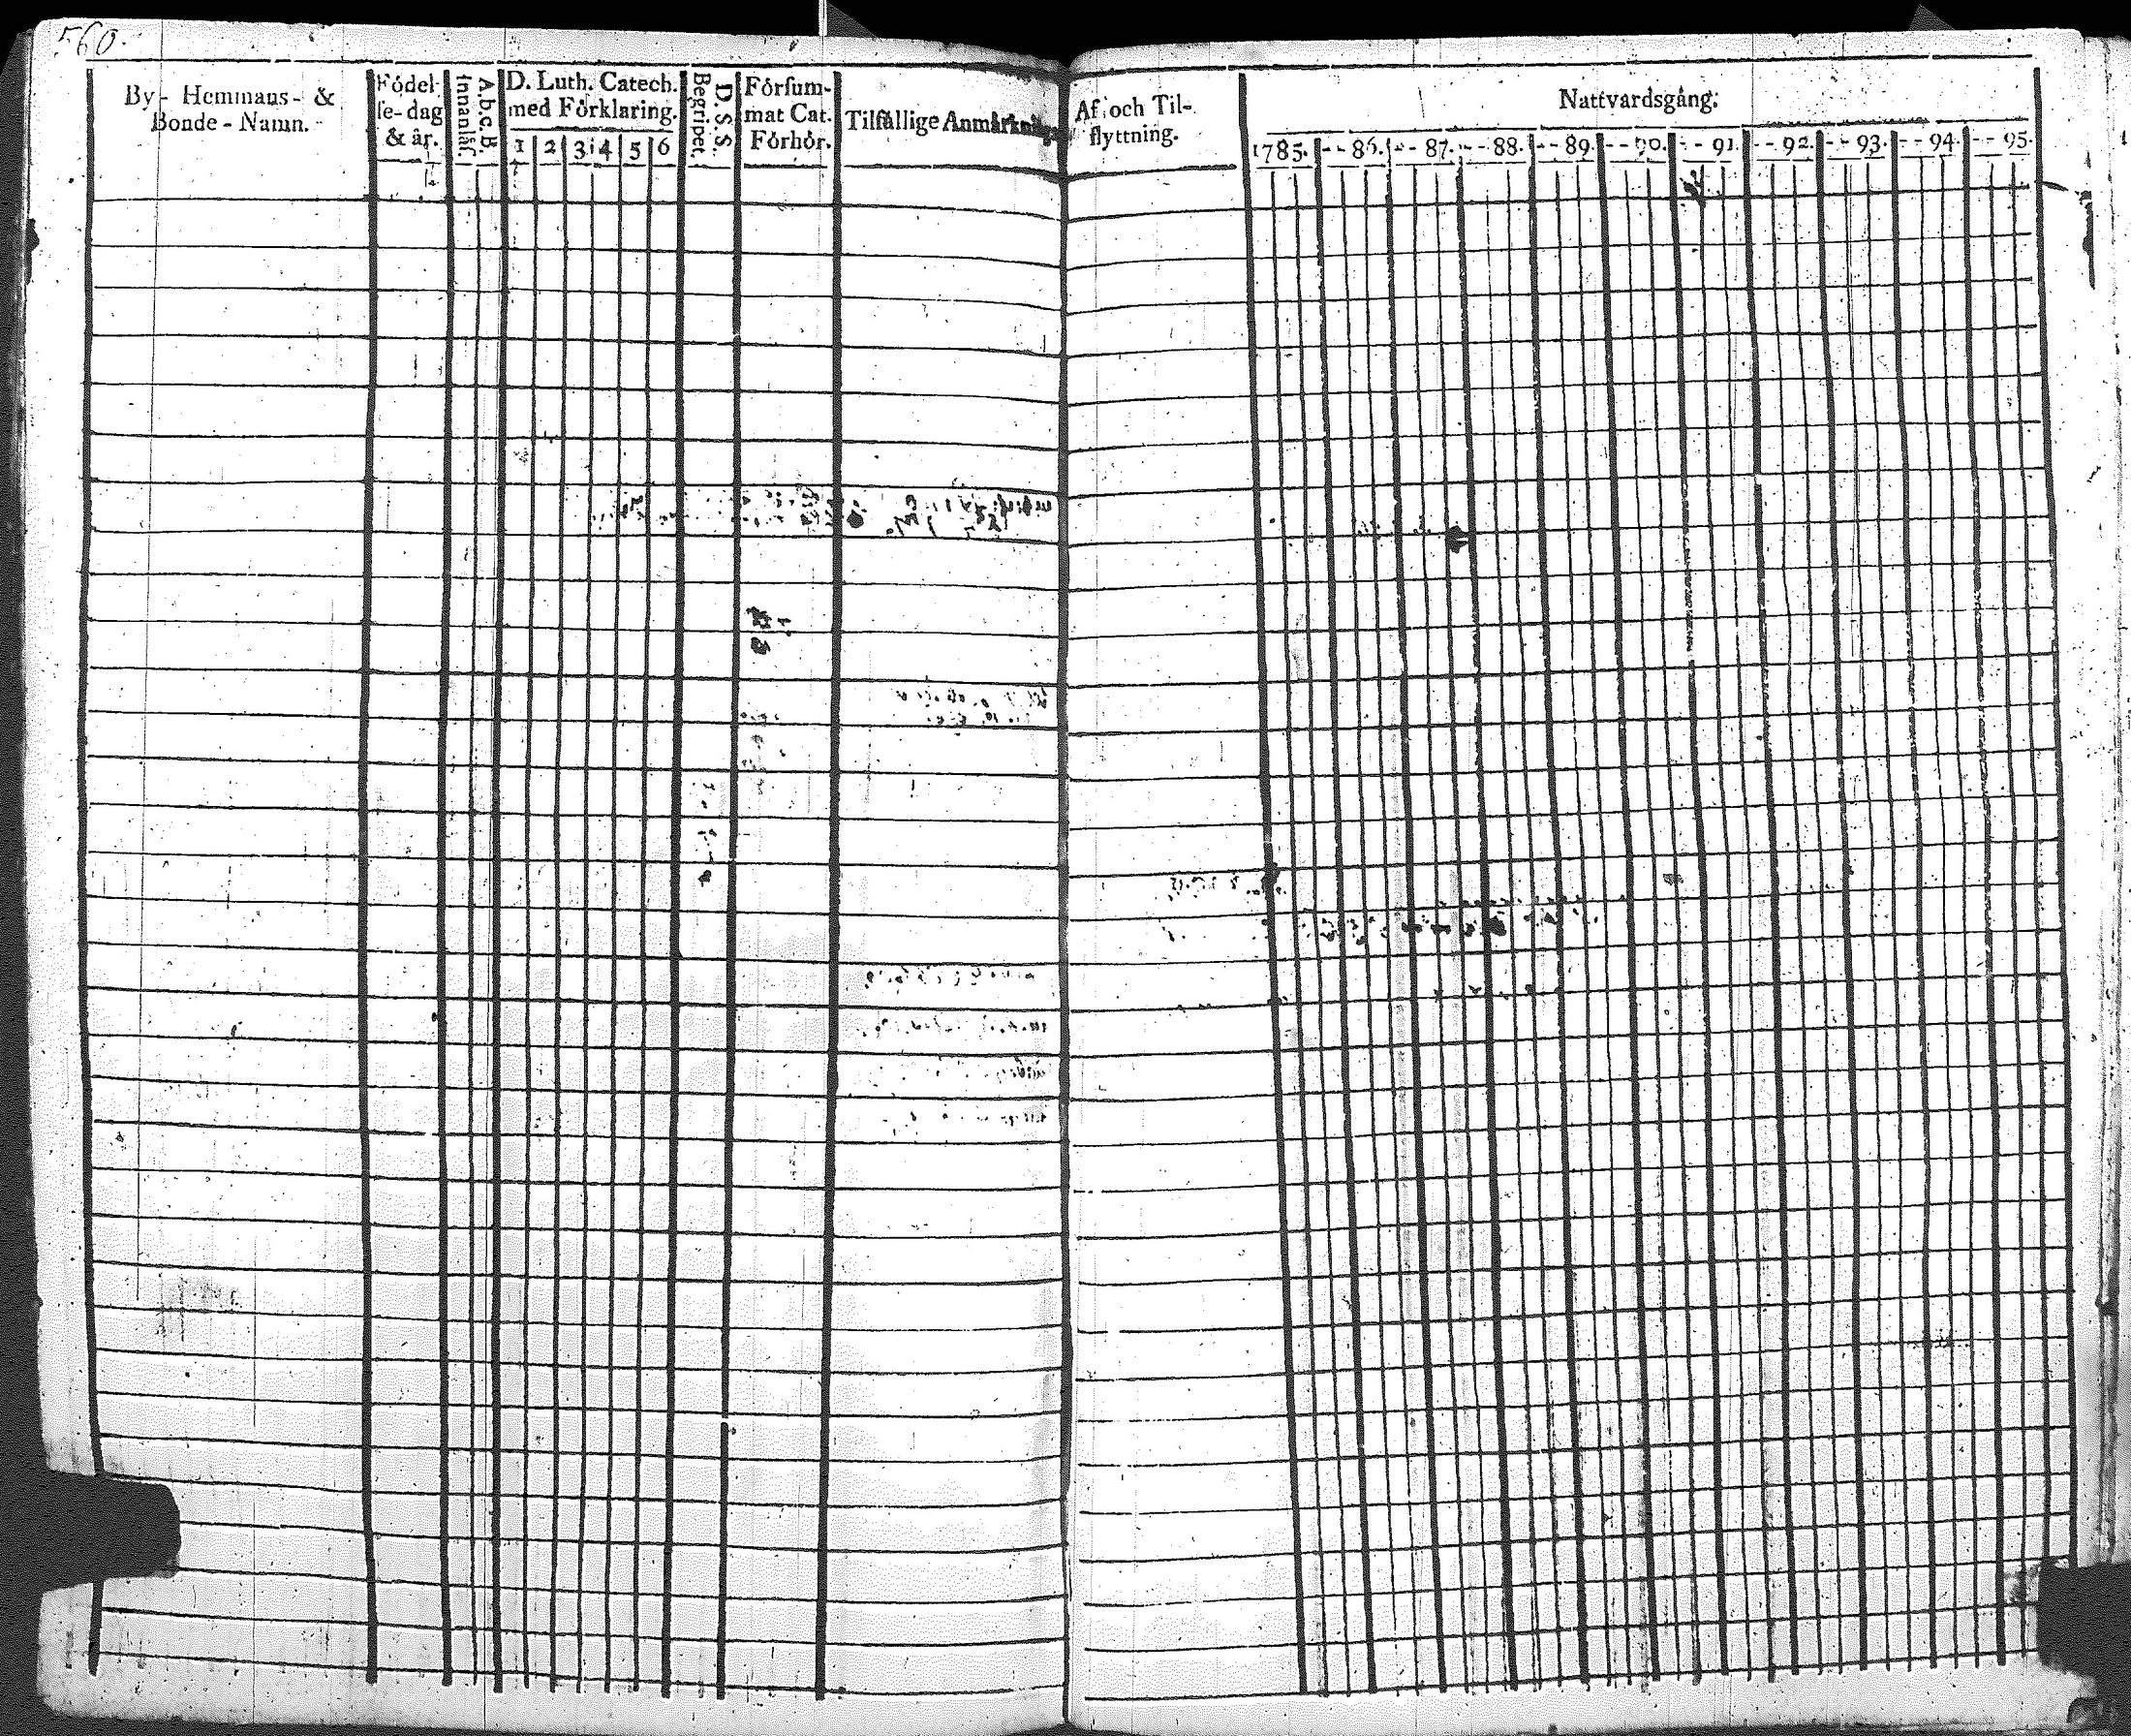 560.
By- Hemmans- &
Bonde-Namn.
Födel-
se-dag
& år.
A.b.c.B.
Innanläs.
D. Luth. Catech.
med Förklaring.
1 2 3 4 5 6
D. S. S.
Begripet.
Försum-
mat Cat.
Förhör.
Tilfällige Anmärkning
Af och Til-
flyttning.
Nattvardsgång.
1785. - - 86. - - 87. - - 88. - - 89. - - 90. - - 91. - - 92. - - 93. - - 94. - - 95.